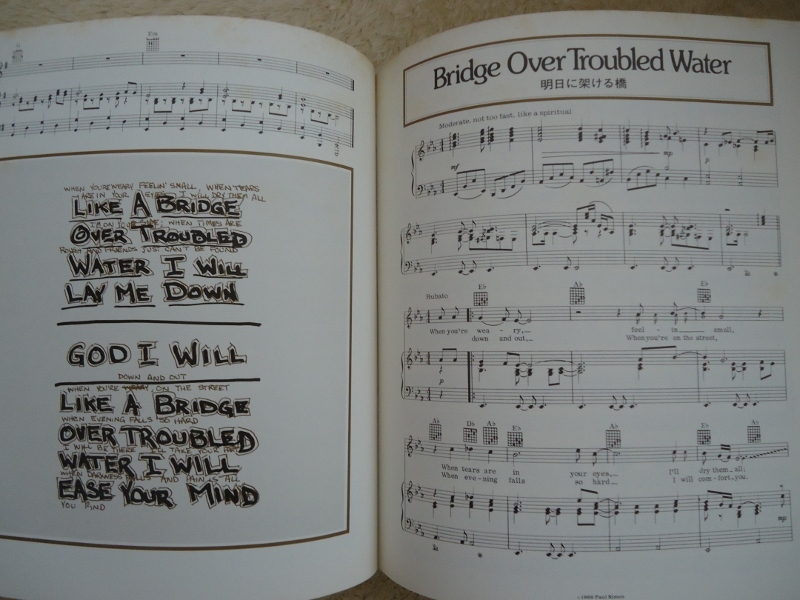 WHEN YOU'RE WEARY FEELIN' SMALL, WHEN TEARS
ARE IN YOUR EYES I WILL DRY THEM ALL
LIKE A BRIDGE
WHEN TIMES ARE
OVER TROUBLED
ROUGH AND FRIENDS JUST CAN'T BE FOUND
WATER I WILL
LAY ME DOWN
GOD I WILL
DOWN AND OUT
WHEN YOU'RE ON THE STREET
LIKE A BRIDGE
WHEN EVENING FALLS SO HARD
OVER TROUBLED
I WILL BE THERE I'LL TAKE YOUR PART
WATER I WILL
WHEN DARKNESS AND PAIN IS ALL
EASE YOUR MIND
YOU FIND
Bridge Over Troubled Water
明日に架ける橋
Moderate, not too fast, like a spiritual
mf
mp
p
Rubato
E♭ A♭ E♭
When you're wea - ry, feel - in' small,
down and out, When you're on the street,
p
A♭ D♭ A♭ E♭ A♭ E♭ A♭
When tears are in your eyes, I'll dry them all;
When eve-ning falls so hard I will com-fort you.
mp
© 1969 Paul Simon